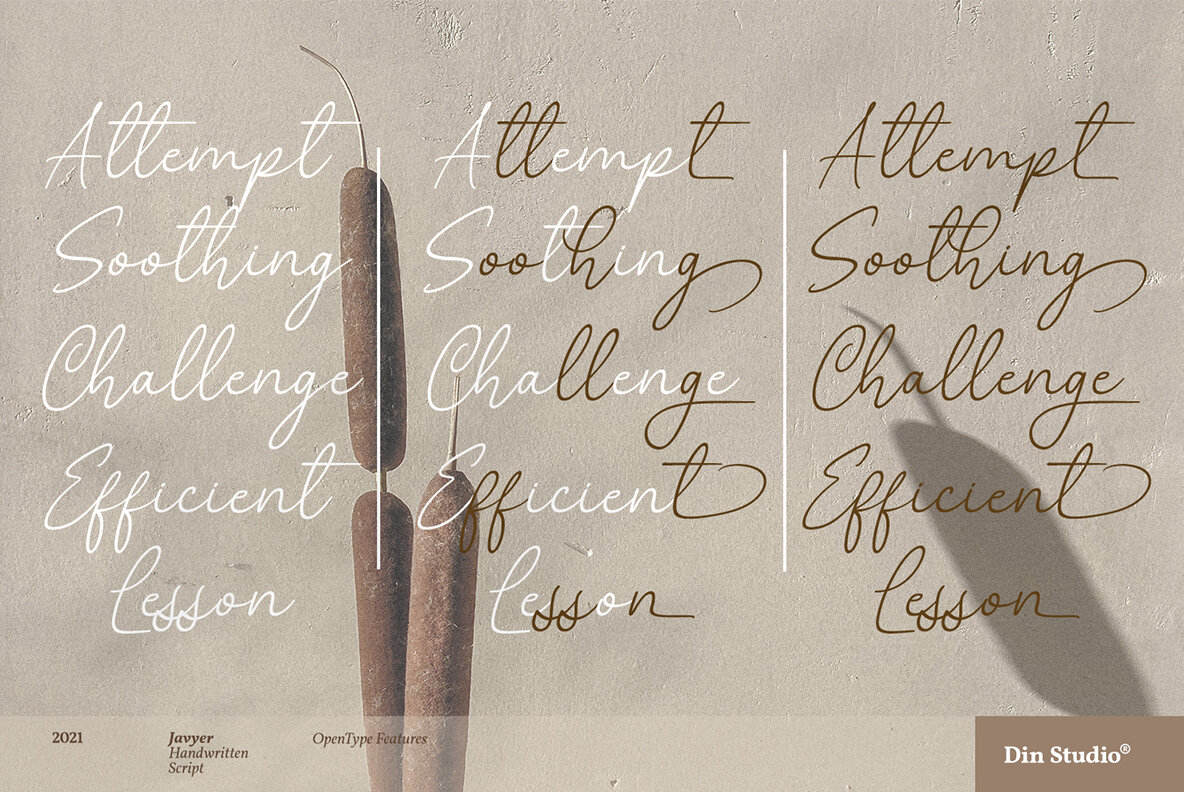 Attempt
Soothing
Challenge
Efficient
Lesson
Attempt
Soothing
Challenge
Efficient
Lesson
Attempt
Soothing
Challenge
Efficient
Lesson
2021
Javyer
Handwritten
Script
OpenType Features
Din Studio®